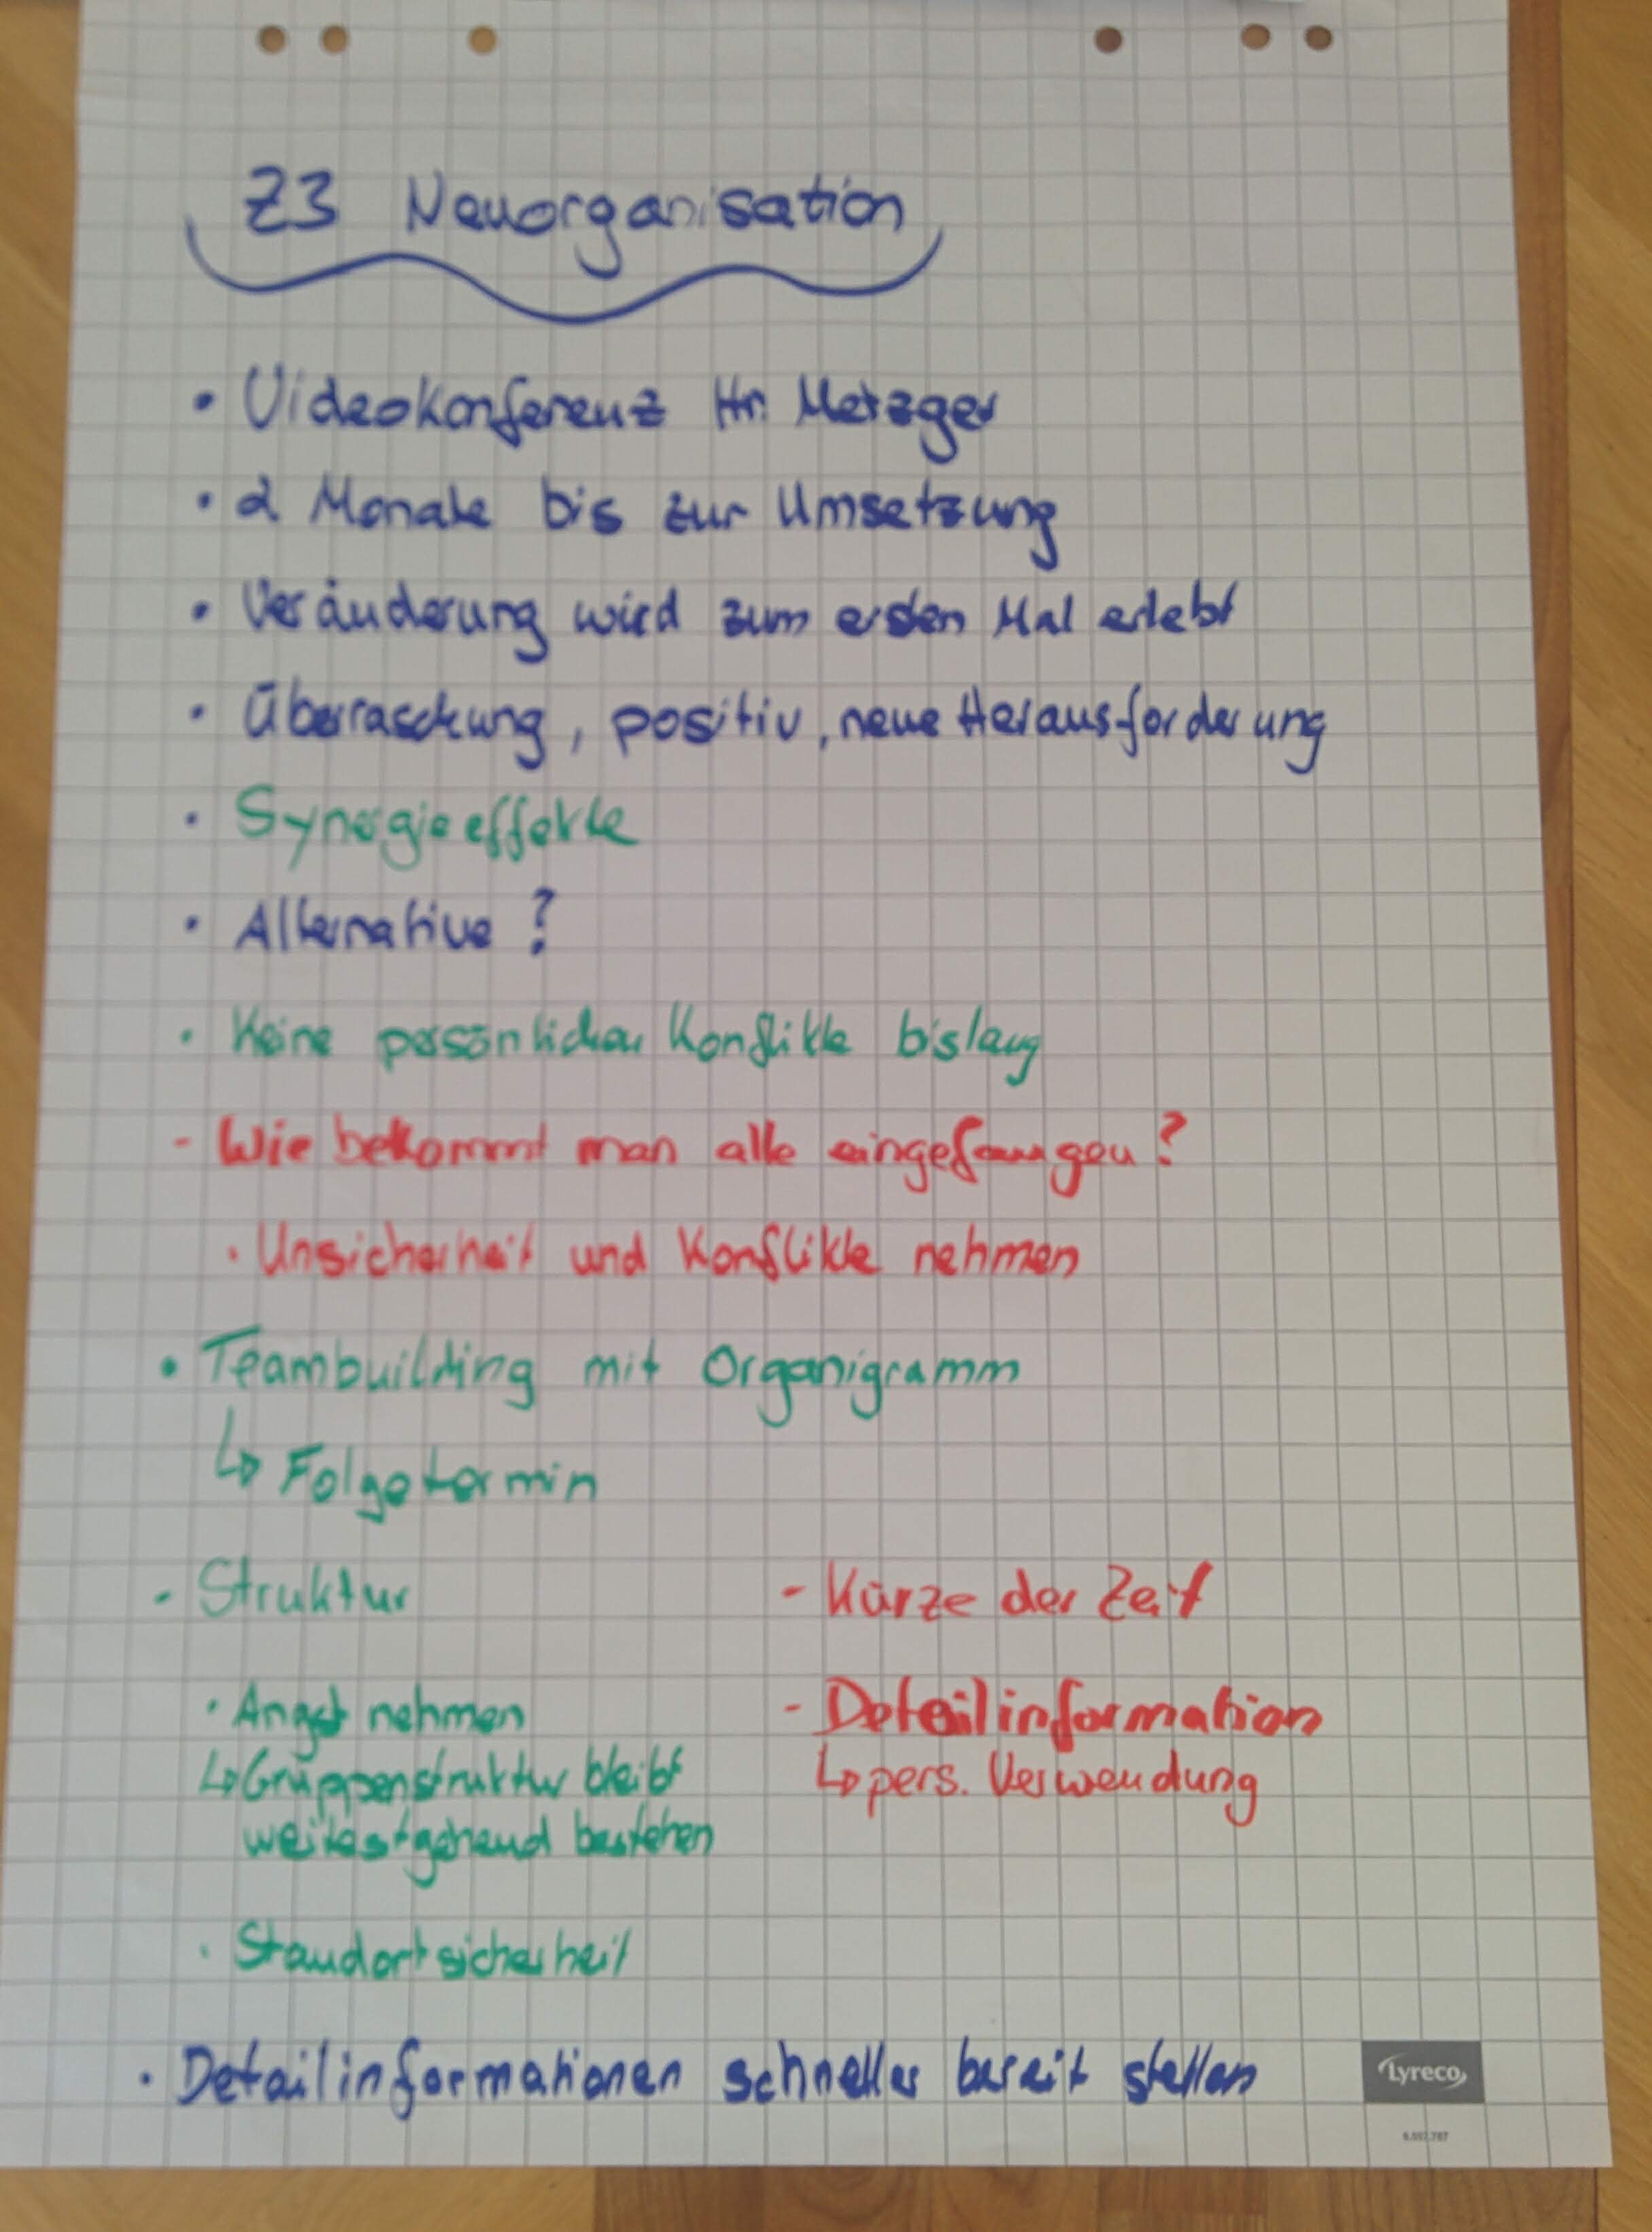 Z3 Neuorganisation
• Videokonferenz Hr. Metzger
• 2 Monate bis zur Umsetzung
• Veränderung wird zum ersten Mal erlebt
• Überraschung, positiv, neue Herausforderung
• Synergieeffekte
• Alternative ?
• Keine persönlichen Konflikte bislang
- Wie bekommt man alle eingefangen ?
• Unsicherheit und Konflikte nehmen
• Teambuilding mit Organigramm
↳ Folgetermin
- Struktur
- Kürze der Zeit
• Angst nehmen
- Detailinformation
↳ Gruppenstruktur bleibt
↳ pers. Verwendung
weitestgehend bestehen
• Standortsicherheit
• Detailinformationen schneller bereit stellen
Lyreco